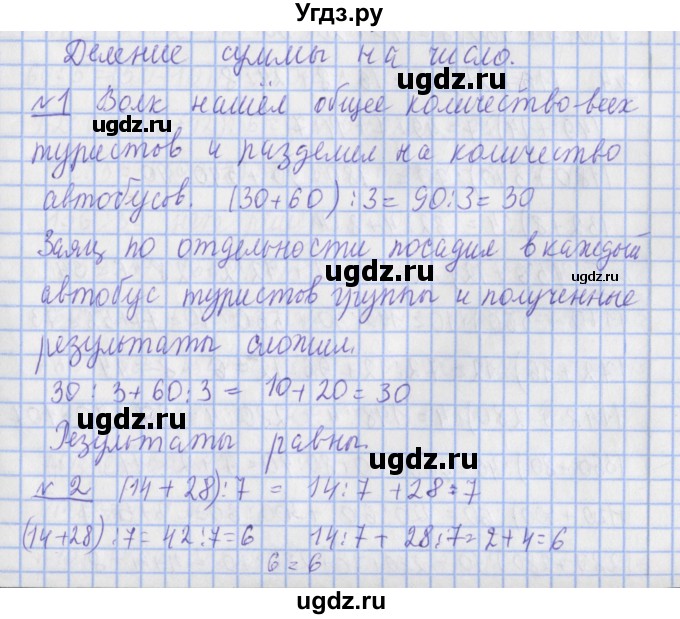 Угдз.ру
Деление суммы на число.
ugdz.ru
№1 Волк нашёл общее количество всех
ugdz.ru
туристов и разделил на количество
ugdz.ru
автобусов. (30+60):3=90:3=30
Заяц по отдельности посадил в каждый
ugdz.ru ugdz.ru
автобус туристов группы и полученные
результаты сложил.
ugdz.ru
30:3+60:3= 10+20=30
ugdz.ru
Результаты равны.
ugdz.ru
№2 (14+28):7 = 14:7+28:7
(14+28):7=42:7=6 14:7+28:7=2+4=6
6=6
ugdz.ru
ugdz.ru